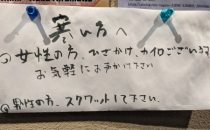 寒い方へ
○女性の方、ひざかけ、カイロございます
お気軽にお声がけ下さい
○男性の方、スクワットして下さい。